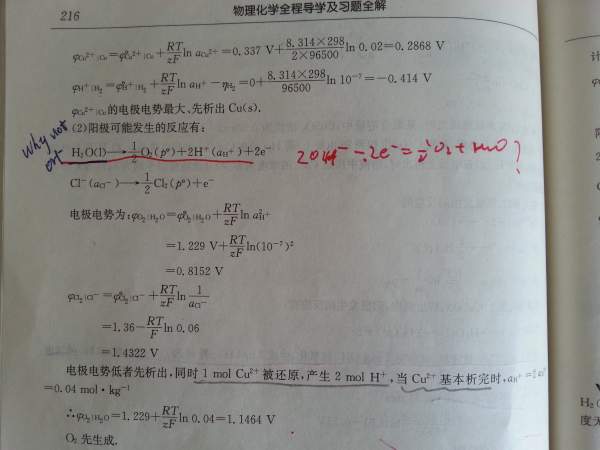 216
物理化学全程导学及习题全解
φCu²⁺|Cu=φ°Cu²⁺|Cu+RT/zF ln aCu²⁺=0.337 V+8.314×298/2×96500 ln 0.02=0.2868 V
φH⁺|H₂=φ°H⁺|H₂+RT/zF ln aH⁺-ηH₂=0+8.314×298/96500 ln 10⁻⁷=-0.414 V
φCu²⁺|Cu的电极电势最大,先析出 Cu(s).
(2)阳极可能发生的反应有:
Why not
H₂O(l)→1/2O₂(p°)+2H⁺(aH⁺)+2e⁻
2OH⁻-2e⁻=1/2O₂+H₂O?
Cl⁻(aCl⁻)→1/2Cl₂(p°)+e⁻
电极电势为:φO₂|H₂O=φ°O₂|H₂O+RT/zF ln a²H⁺
=1.229 V+RT/zF ln(10⁻⁷)²
=0.8152 V
φCl₂|Cl⁻=φ°Cl₂|Cl⁻+RT/zF ln 1/aCl⁻
=1.36-RT/F ln 0.06
=1.4322 V
电极电势低者先析出,同时 1 mol Cu²⁺ 被还原,产生 2 mol H⁺,当 Cu²⁺ 基本析完时,aH⁺=
=0.04 mol·kg⁻¹
∴φO₂|H₂O=1.229+RT/zF ln 0.04=1.1464 V
O₂ 先生成.
计
H₂(
度无